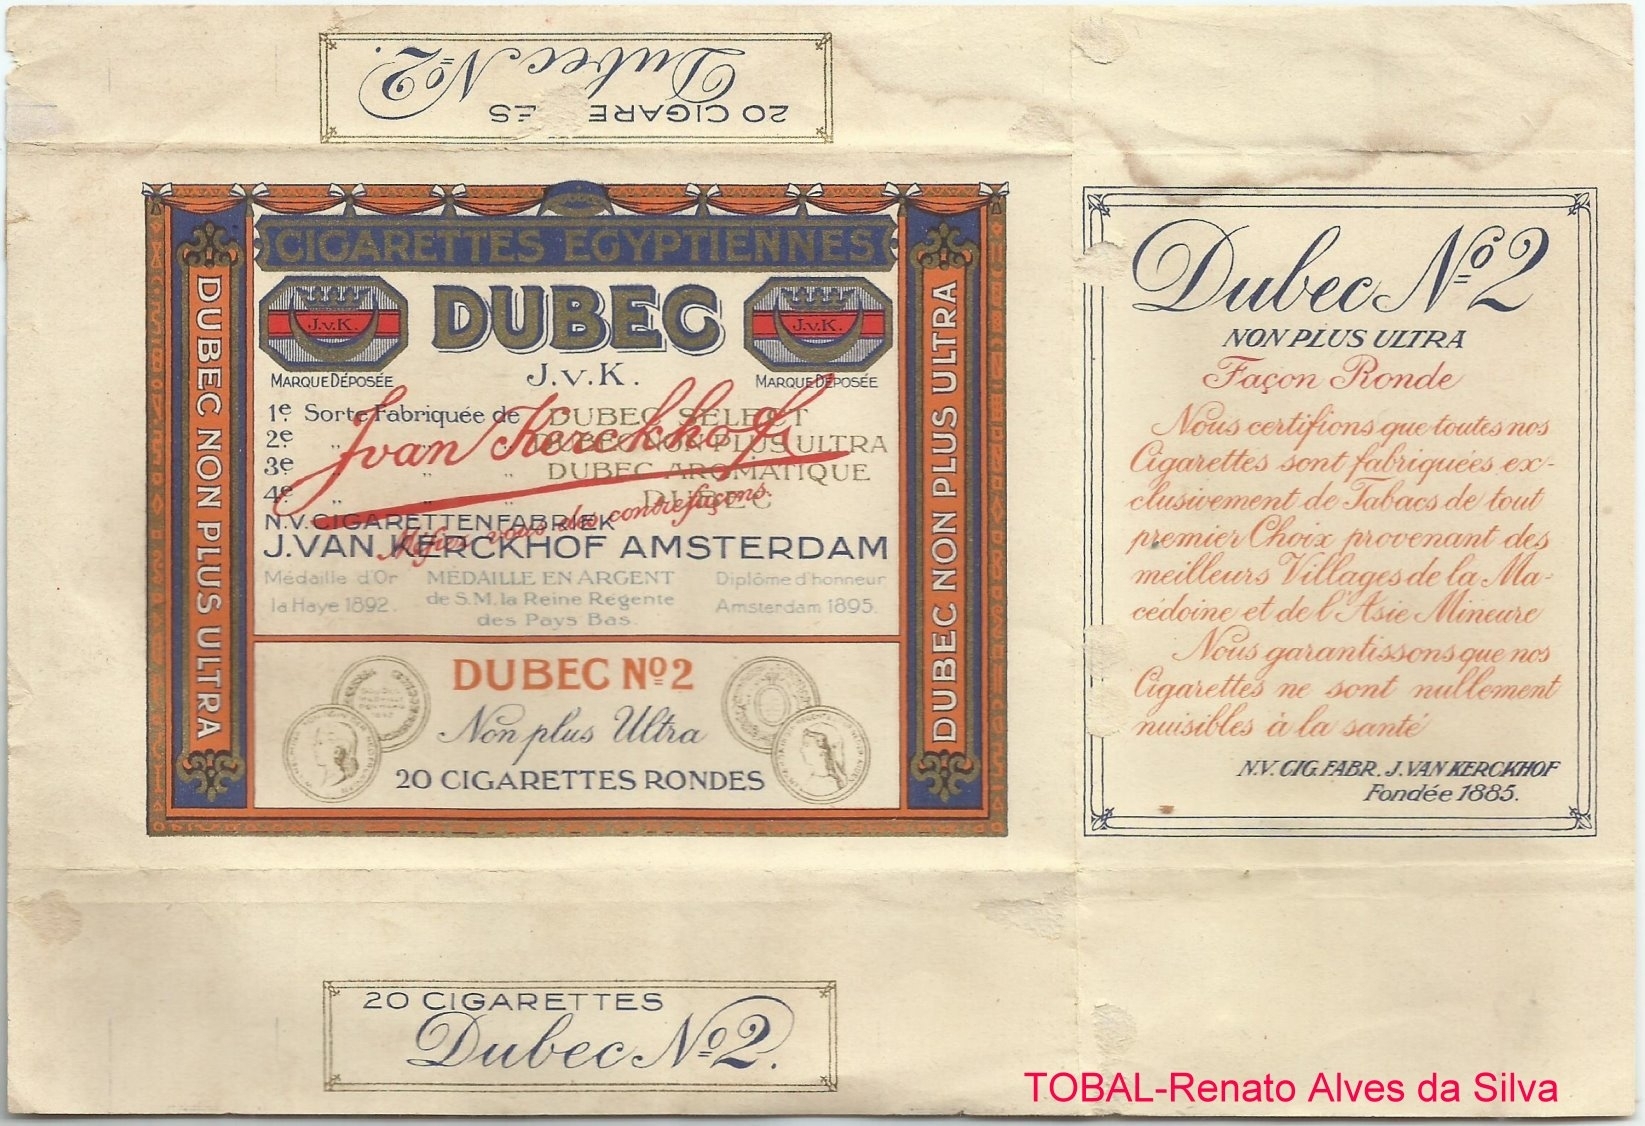 20 CIGARE ES
Dubec Nº2.
CIGARETTES EGYPTIENNES
DUBEC
J.v.K.
J.v.K.
J.v.K.
MARQUE DÉPOSÉE
MARQUE DÉPOSÉE
1e. Sorte Fabriquée de DUBEC SELECT
2e. „ „ „ DUBEC NON PLUS ULTRA
3e. „ „ „ DUBEC AROMATIQUE
4e. „ „ „ DUBEC
J van Kerckhof
Méfiez vous des contrefaçons.
N.V. CIGARETTENFABRIEK
J. VAN KERCKHOF AMSTERDAM
Médaille d'Or
la Haye 1892.
MÉDAILLE EN ARGENT
de S.M. la Reine Régente
des Pays Bas.
Diplôme d'honneur
Amsterdam 1895.
DUBEC NON PLUS ULTRA
DUBEC NON PLUS ULTRA
DUBEC Nº2
Non plus Ultra
20 CIGARETTES RONDES
Dubec Nº2
NON PLUS ULTRA
Façon Ronde
Nous certifions que toutes nos
Cigarettes sont fabriquées ex-
clusivement de Tabacs de tout
premier Choix provenant des
meilleurs Villages de la Ma-
cédoine et de l'Asie Mineure
Nous garantissons que nos
Cigarettes ne sont nullement
nuisibles à la santé
N.V. CIG. FABR. J. VAN KERCKHOF
Fondée 1885.
20 CIGARETTES
Dubec Nº2.
TOBAL-Renato Alves da Silva